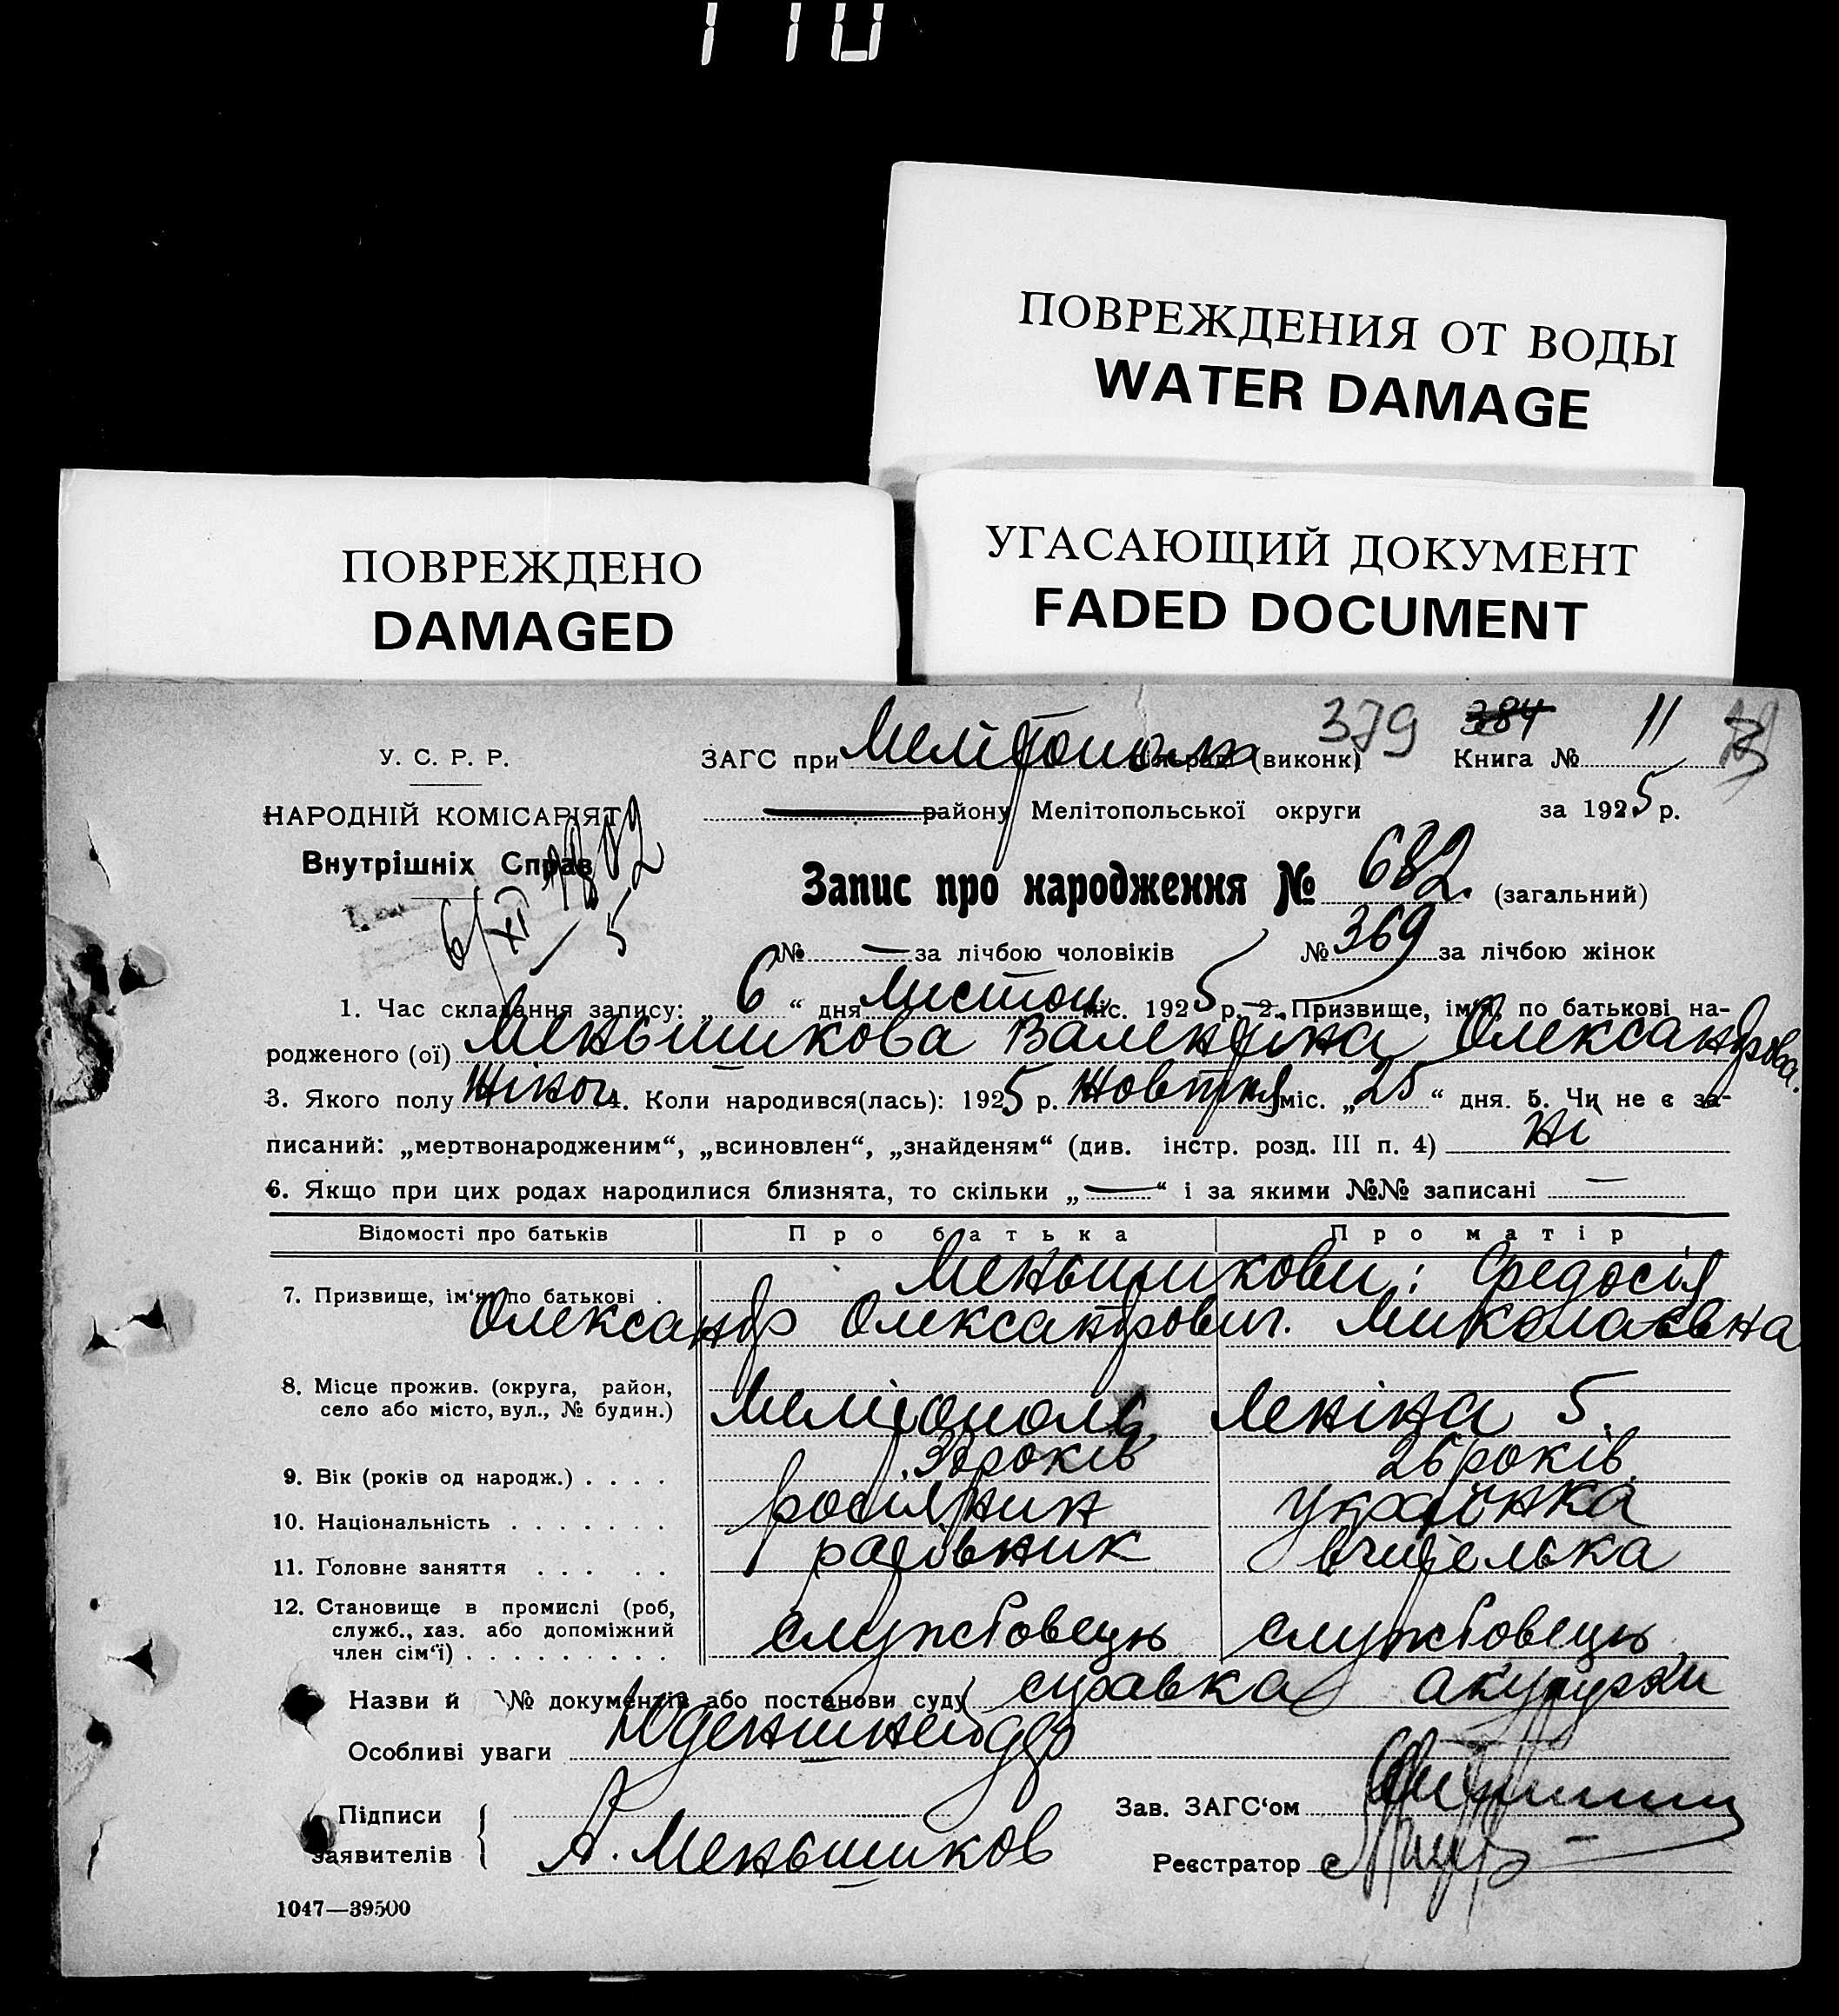 110
ПОВРЕЖДЕНИЯ ОТ ВОДЫ
WATER DAMAGE
ПОВРЕЖДЕНО
DAMAGED
УГАСАЮЩИЙ ДОКУМЕНТ
FADED DOCUMENT
379 384 11
У. С. Р. Р.
ЗАГС при (виконк) Книга №
НАРОДНІЙ КОМІСАРІЯТ
району Мелітопольської округи за 1925 р.
Внутрішніх Справ
Запис про народження № 682. (загальний)
6/XI 5
№ — за лічбою чоловіків № 369 за лічбою жінок
1. Час складання запису: „ 6 “ дня листоп міс. 1925 р. 2. Призвище, ім'я, по батькові на-
родженого (ої) Меньшикова Валентина Олександрова.
3. Якого полу Жіноч 4. Коли народився(лась): 1925 р. Жовтня міс. „ 25 “ дня. 5. Чи не є за-
писаний: „мертвонародженим“, „всиновлен“, „знайденям“ (див. інстр. розд. III п. 4) Ні
6. Якщо при цих родах народилися близнята, то скільки „ — “ і за якими №№ записані —
Відомості про батьків Про батька Про матір
Меньшикови: Федосія
7. Призвище, ім'я, по батькові .
Олександр Олександрович. Миколаєвна
8. Місце прожив. (округа, район,
село або місто, вул., № будин.) Мелітополь Леніна 5.
9. Вік (років од народж.) . . . . років 26 років.
10. Національність . . . . . . . росіянин українка
11. Головне заняття . . . . . вчителька
12. Становище в промислі (роб,
служб., хаз. або допоміжний службовець службовець
член сім'ї) . . . . . . . . .
Назви й № документів або постанови суду справка акушерки
Особливі уваги
Підписи
заявителів А. Меньшиков
Зав. ЗАГС'ом
Реєстратор
1047—39500